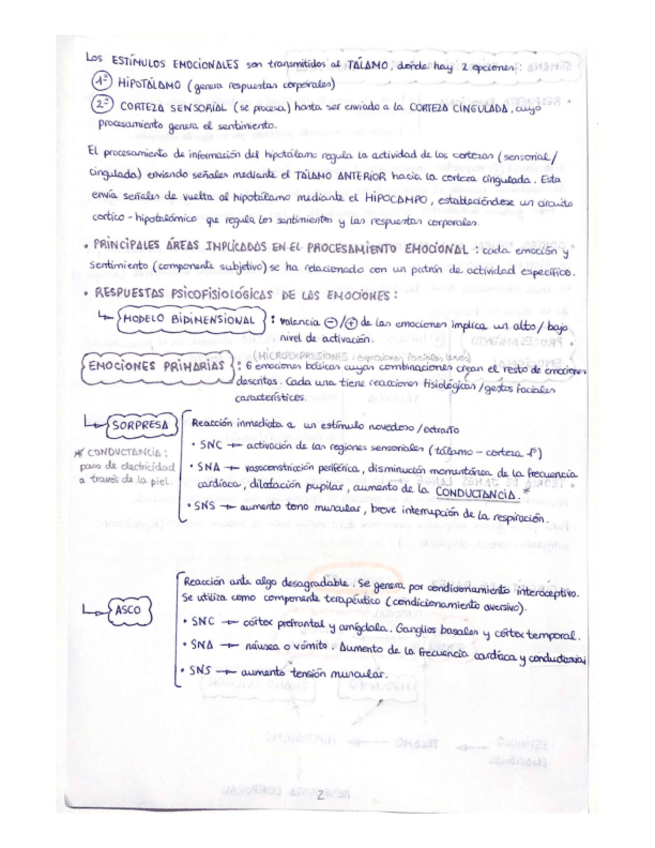 Los ESTÍMULOS EMOCIONALES son transmitidos al TÁLAMO, donde hay 2 opciones:
1º HIPOTÁLAMO (genera respuestas corporales)
2º CORTEZA SENSORIAL (se procesa) hasta ser enviado a la CORTEZA CINGULADA, cuyo
procesamiento genera el sentimiento.
El procesamiento de información del hipotálamo regula la actividad de las cortezas (sensorial/
cingulada) enviando señales mediante el TÁLAMO ANTERIOR hacia la corteza cingulada. Esta
envía señales de vuelta al hipotálamo mediante el HIPOCAMPO, estableciéndose un circuito
cortico-hipotalámico que regula los sentimientos y las respuestas corporales.
• PRINCIPALES ÁREAS IMPLICADAS EN EL PROCESAMIENTO EMOCIONAL: cada emoción y
sentimiento (componente subjetivo) se ha relacionado con un patrón de actividad específico.
• RESPUESTAS PSICOFISIOLÓGICAS DE LAS EMOCIONES:
↳ MODELO BIDIMENSIONAL: valencia ⊖/⊕ de las emociones implica un alto/bajo
nivel de activación.
(MICROEXPRESIONES: expresiones faciales leves)
EMOCIONES PRIMARIAS: 6 emociones básicas cuyas combinaciones crean el resto de emociones
descritas. Cada una tiene reacciones fisiológicas/gestos faciales
característicos.
↳ SORPRESA
Reacción inmediata a un estímulo novedoso/extraño
• SNC → activación de las regiones sensoriales (tálamo - corteza 1ª)
• SNA → vasoconstricción periférica, disminución momentánea de la frecuencia
cardíaca, dilatación pupilar, aumento de la CONDUCTANCIA. *
• SNS → aumento tono muscular, breve interrupción de la respiración.
* CONDUCTANCIA:
paso de electricidad
a través de la piel.
↳ ASCO
Reacción ante algo desagradable. Se genera por condicionamiento interoceptivo.
Se utiliza como componente terapéutico (condicionamiento aversivo).
• SNC → córtex prefrontal y amígdala. Ganglios basales y córtex temporal.
• SNA → náusea o vómito. Aumento de la frecuencia cardíaca y conductancia
• SNS → aumento tensión muscular.
2